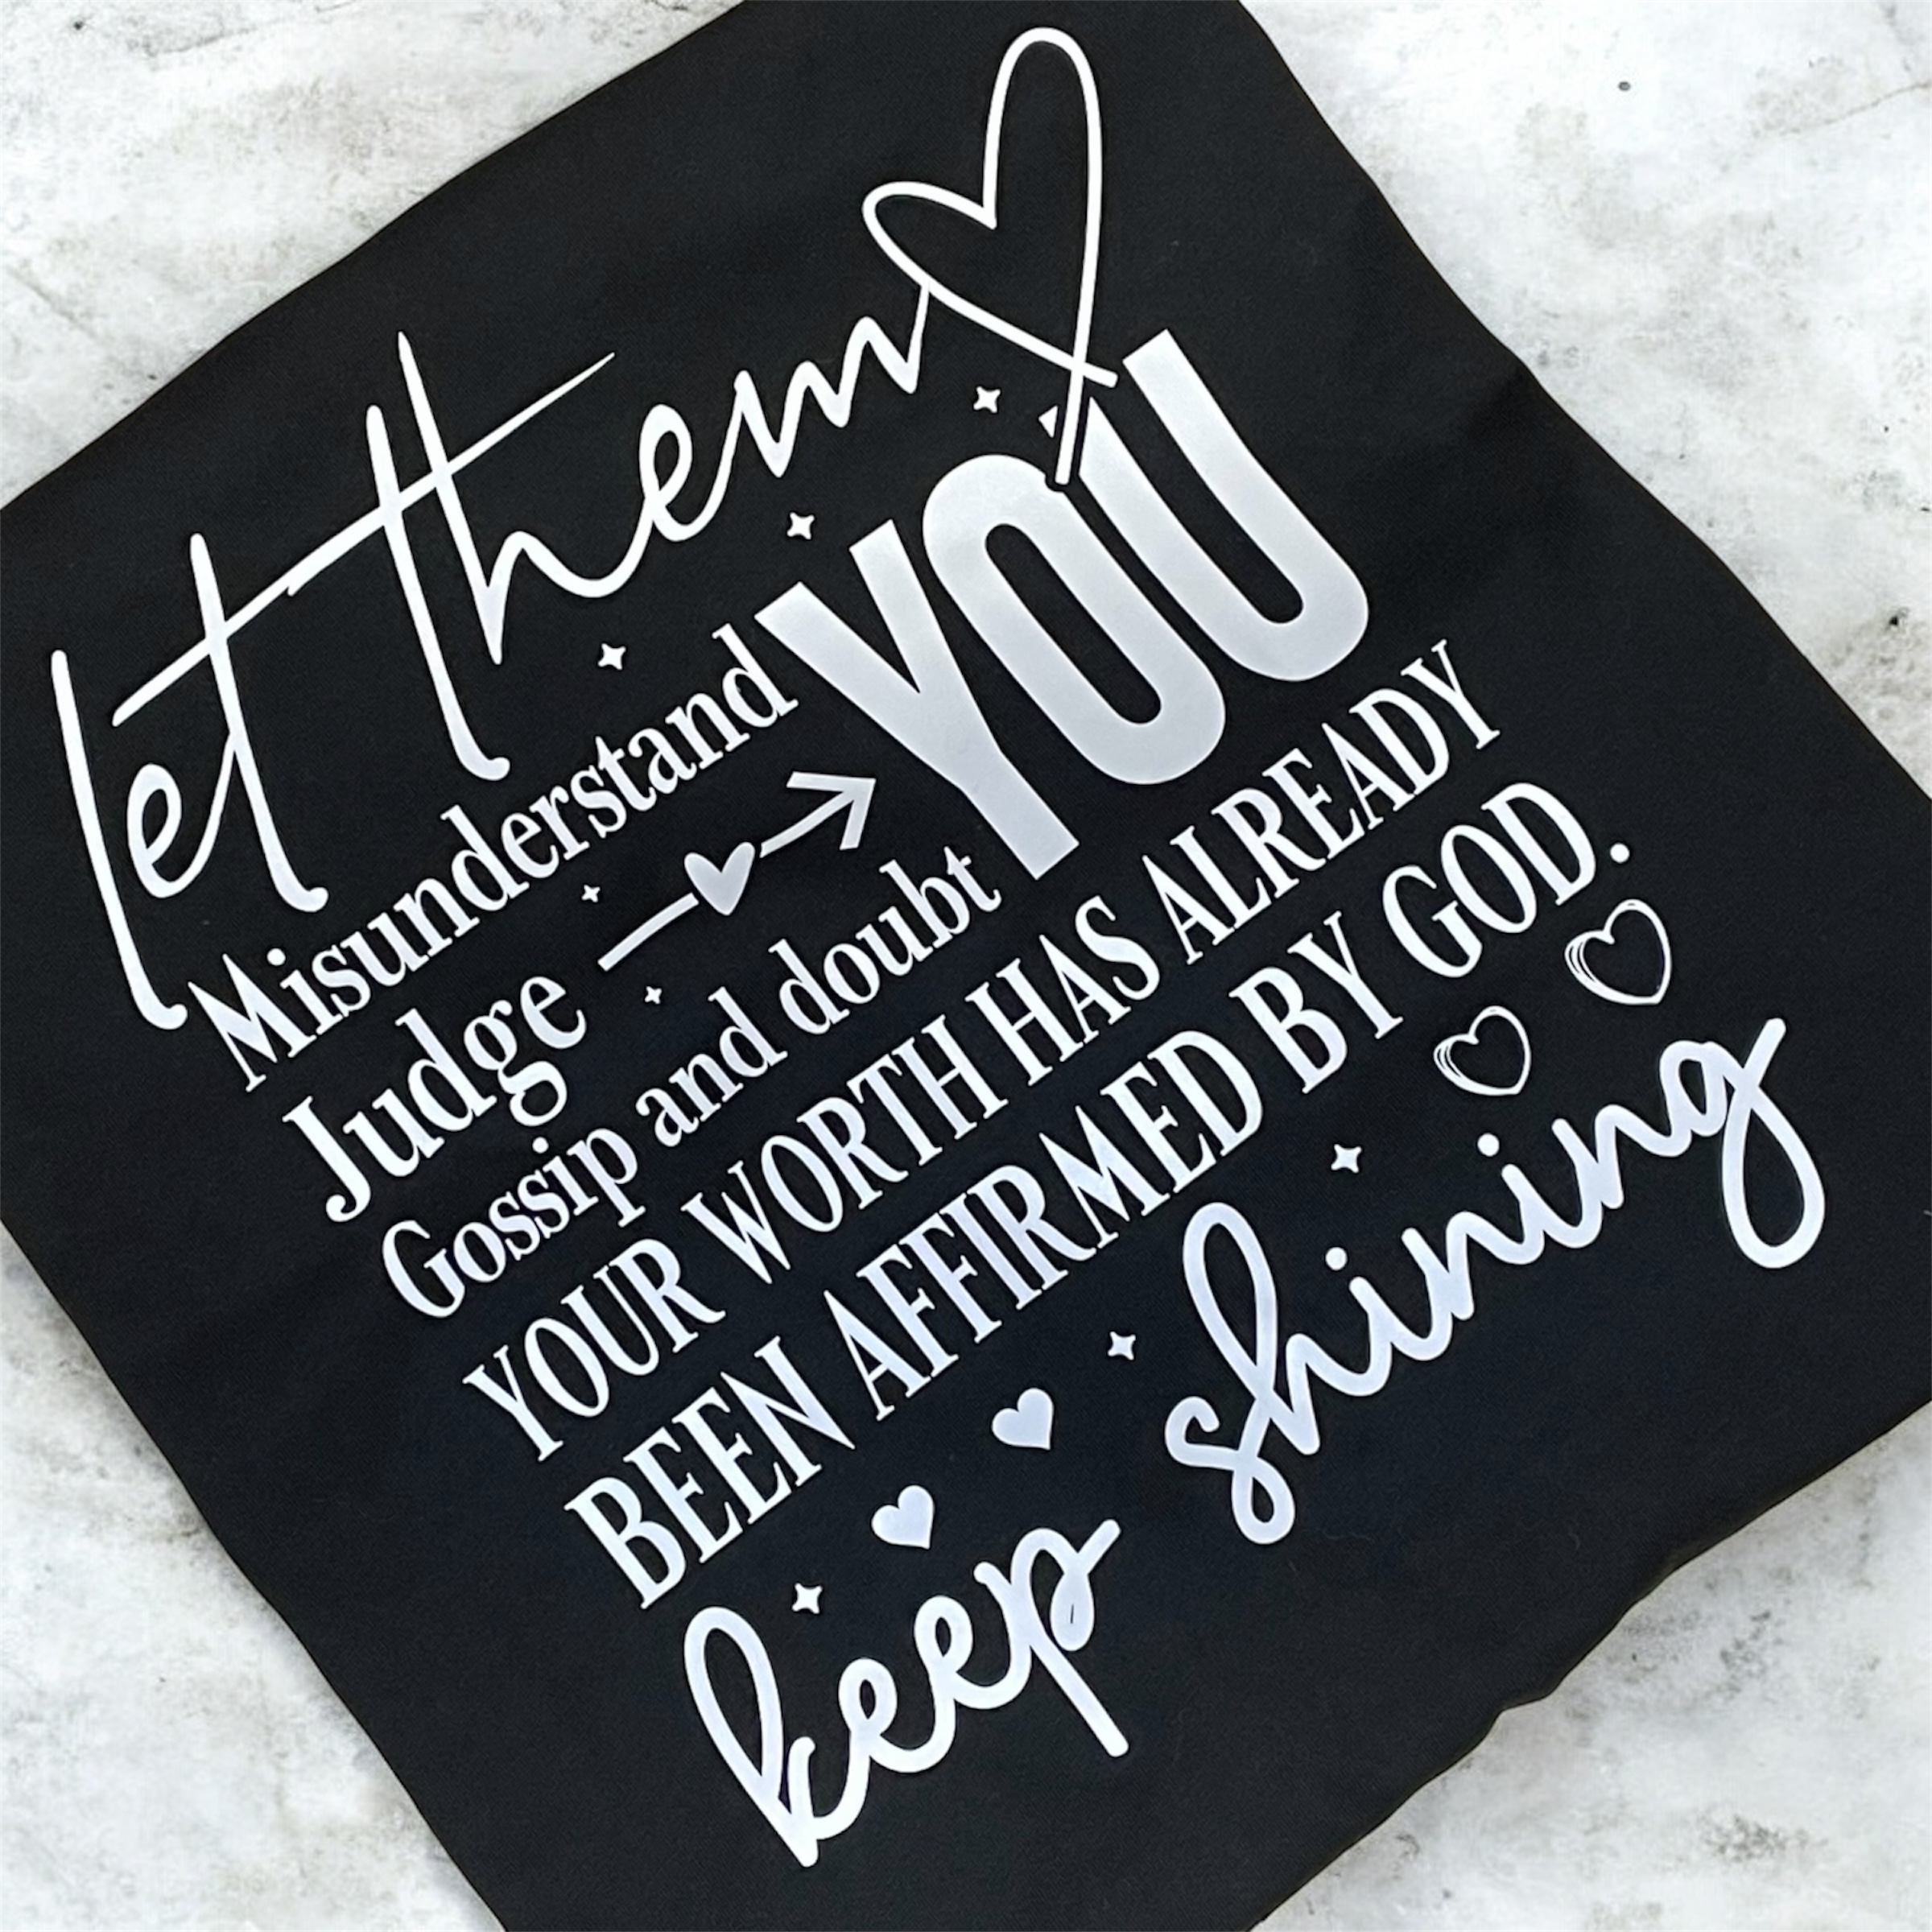 let them
Misunderstand
Judge YOU
Gossip and doubt
YOUR WORTH HAS ALREADY
BEEN AFFIRMED BY GOD.
keep shining